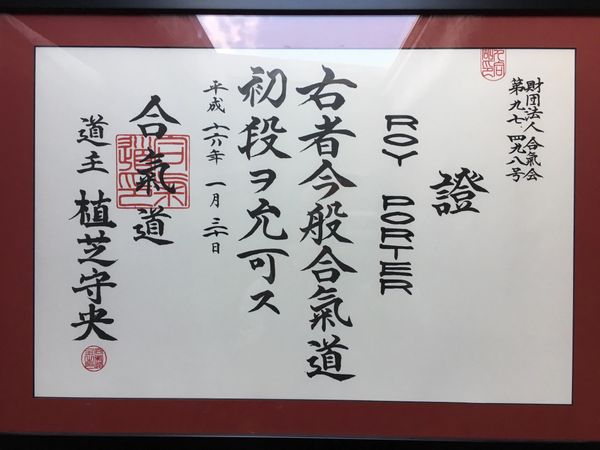 財団法人 合氣会
第九七一四九八号
證
ROY PORTER
右者今般合氣道
初段ヲ允可ス
平成 十六年 一月 三十日
合氣道
道主 植芝守央